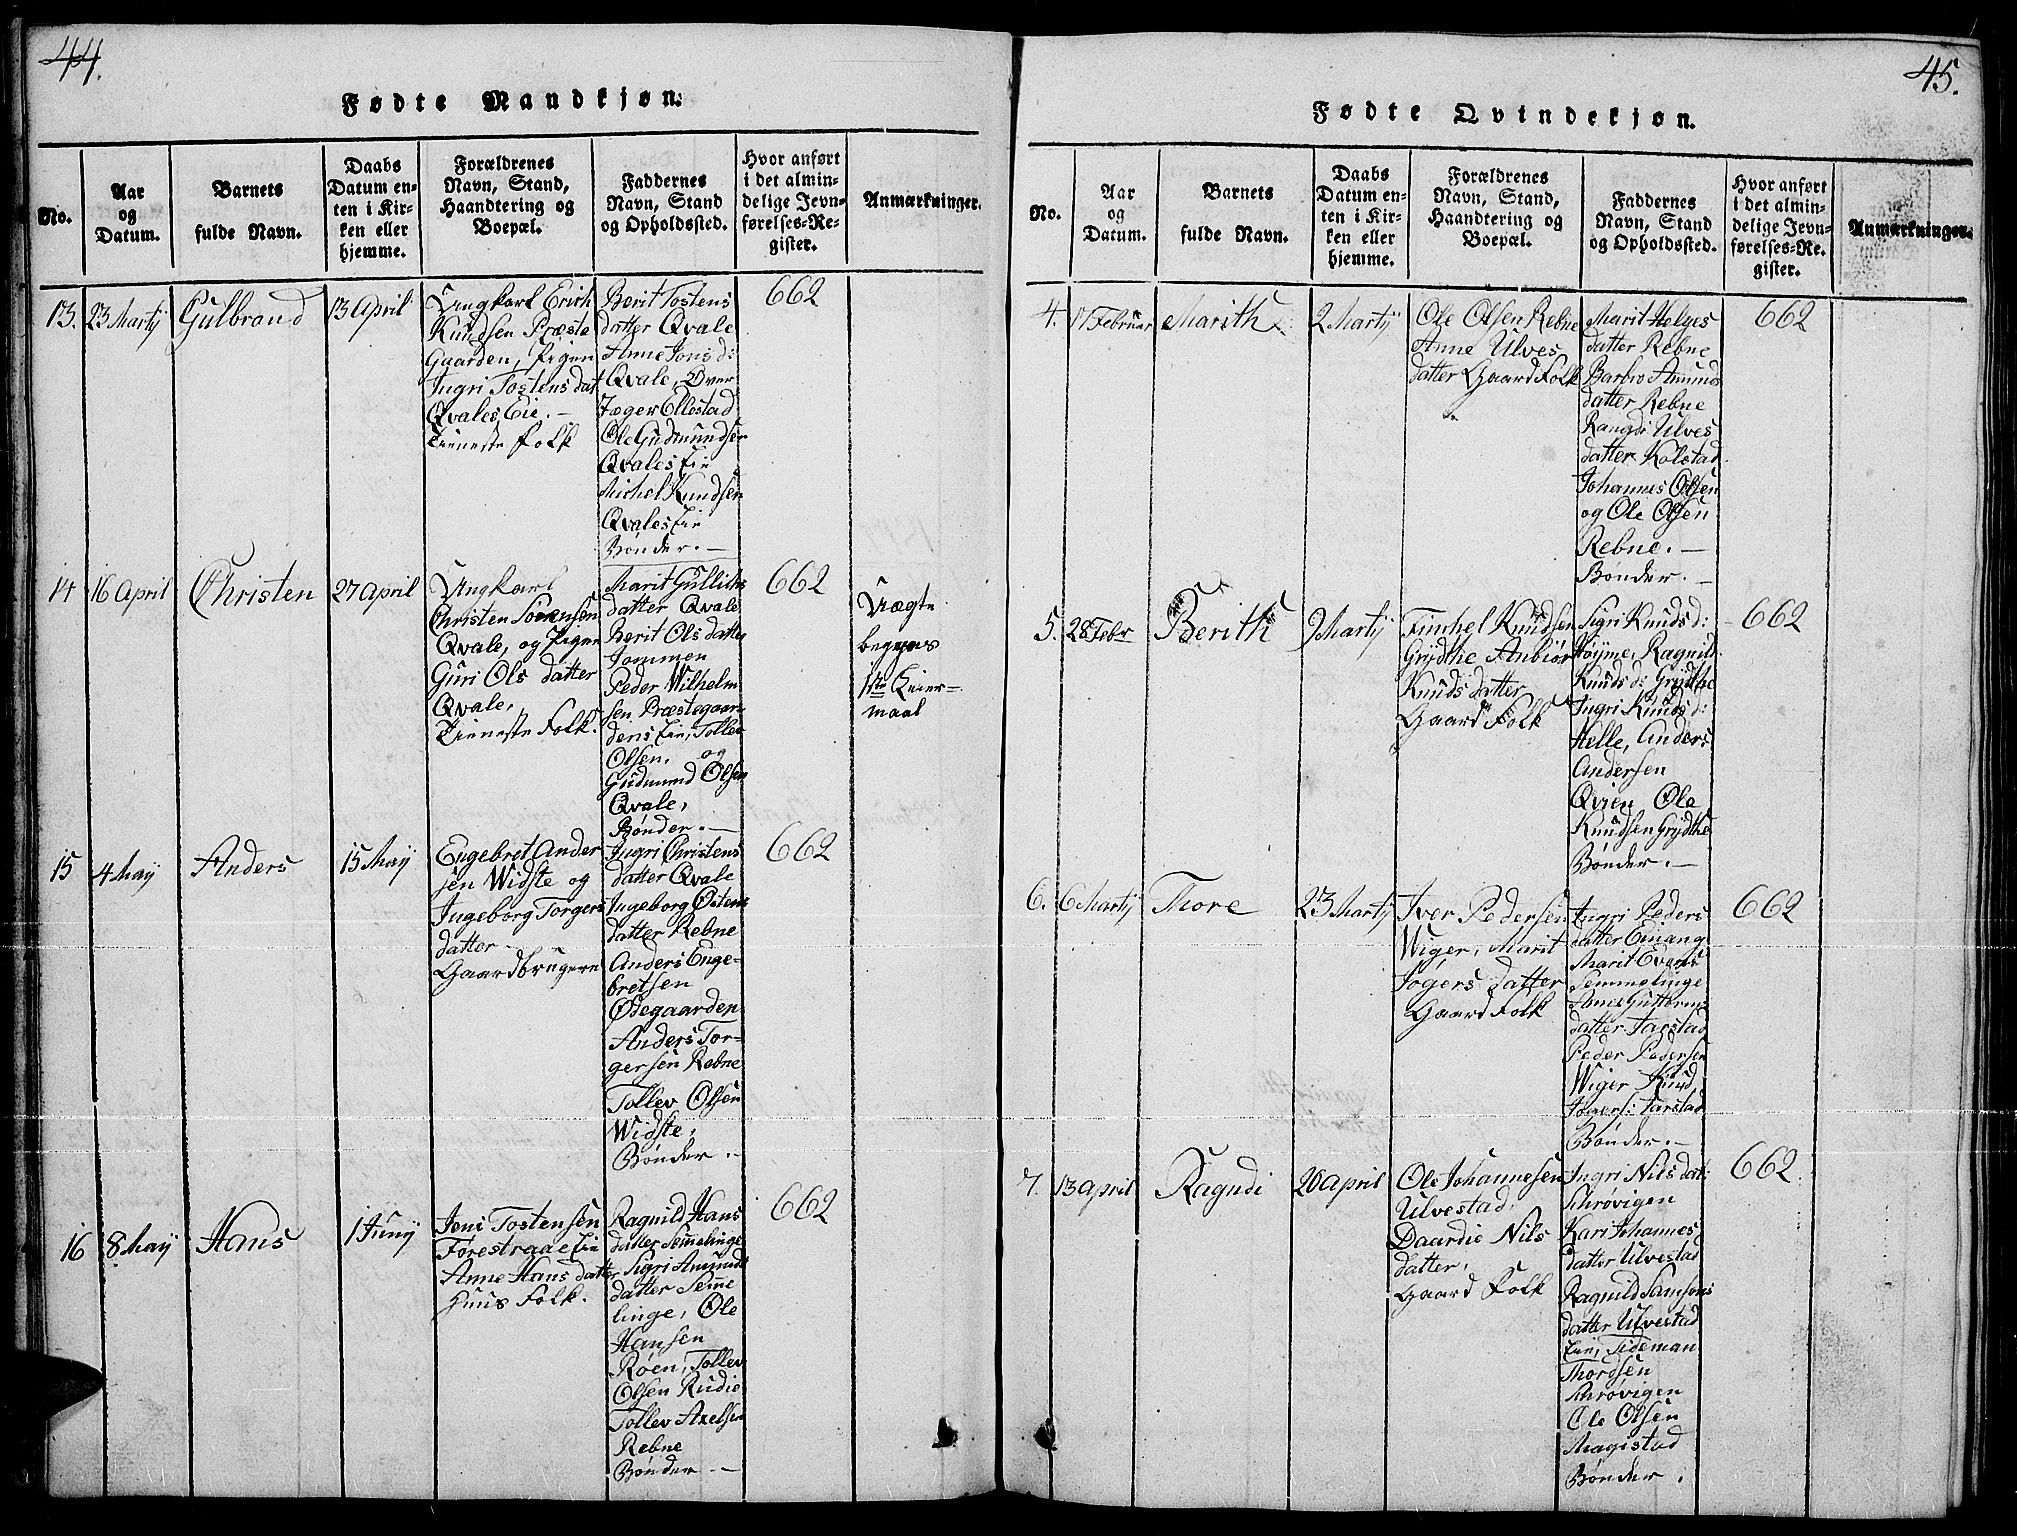 44.
Fødte Mandkjøn.
No.
Aar
og
Datum.
Barnets
fulde Navn.
Daabs
Datum en-
ten i Kir-
ken eller
hjemme.
Forældrenes
Navn, Stand,
Haandtering og
Boepæl.
Faddernes
Navn, Stand
og Opholdssted.
Hvor anført
i det almin-
delige Jevn-
førelses-Re-
gister.
Anmærkninger.
13. 23 Martij Gulbrand 13 April
Ungkarl Erich
Knudsen Præste
Gaarden, Pigen
Ingri Tostens dat
Qvales Eie. —
Tieneste Folk
Berit Tostens
datter Qvale
Anne Jons d:
Qvale, Over
Jæger Ellestad
Ole Gudmundsen
Qvales Eie
Michel Knudsen
Qvales Eie
Bønder. —
662
14 16 April Christen 27 April
Ungkarl
Christen Sørensen
Qvale, og Pigen
Guri Ols datter
Qvale,
Tieneste Folk.
Marit Gulliks
datter Qvale
Berit Ols datter
Jommen
Peder Wilhelm
sen Præstegaar-
dens Eie, Tollev
Olsen, og
Gudmund Olsen
Qvale,
Bønder. —
662
Begte
begges
1ste Leier-
maal
15 4 Maij Anders 15 Maij
Engebret Ander
sen Widste og
Ingeborg Torgers
datter
Gaardbrugere
Ingri Christens
datter Qvale
Ingeborg Østens
datter Rebne
Anders Enge-
bretsen
Ødegaarden
Anders Tor-
gersen Rebne
Tollev Olsen
Widste,
Bønder.
662
16 8 Maij Hans 1 Junij
Joni Tostensen
Forestraae Eie
Anne Hans datter
Huus Folk.
Ragnild Hans
datter Semelinge
Sigri Amunds
datter Seme
linge, Ole
Hansen
Røen, Tollev
Olsen Rudie
Tollev Axelsen
Rebne
Bønder —
662
45.
Fødte Qvindekjøn.
No.
Aar
og
Datum.
Barnets
fulde Navn.
Daabs
Datum en-
ten i Kir-
ken eller
hjemme.
Forældrenes
Navn, Stand,
Haandtering og
Boepæl.
Faddernes
Navn, Stand
og Opholdssted.
Hvor anført
i det almin-
delige Jevn-
førelses-Re-
gister.
Anmærkninger.
4. 17 Februar Marith 2 Martij
Ole Olsen Rebne
Anne Ulves
datter Gaard Folk
Marit Helges
datter Rebne
Barbro Amunds
datter Rebne
Rangdi Ulves
datter Kolstad
Johannes Olsen
og Ole Olsen
Rebne. —
Bønder. —
662
5. 28 Febr Berith 9 Martij
Finchel Knudsen
Grydthe Anbiør
Knuds datter
Gaard Folk
Sigri Knuds d:
Høyme, Ragnild
Knuds d: Grydthe
Ingri Knuds d:
Helle, Anders
Andersen
Qvien Ole
Knudsen Grydthe
Bønder. —
662
6. 6 Martij Thore 23 Martij
Iver Pedersen
Wiger, Marit
Jøgers datter
Gaard Folk
Ingri Peders
datter Einang
Marit Evens
Semmelinge
Anne Gutterms
datter Tarstad
Peder Pedersen
Wiger Knud
Jøgers: Tarstad
Bønder. —
662
7. 13 April Ragndi 20 April
Ole Johannesen
Ulvestad,
Daardie Nils
datter,
Gaard Folk
Ingri Nils dat:
Schrøvigen
Kari Johannes
datter Ulvestad
Ragnild Samsons
datter Ulvestad
Eie, Tideman
Thordsen
Schrøvigen
Ole Olsen
Magistad
Bønder.
662